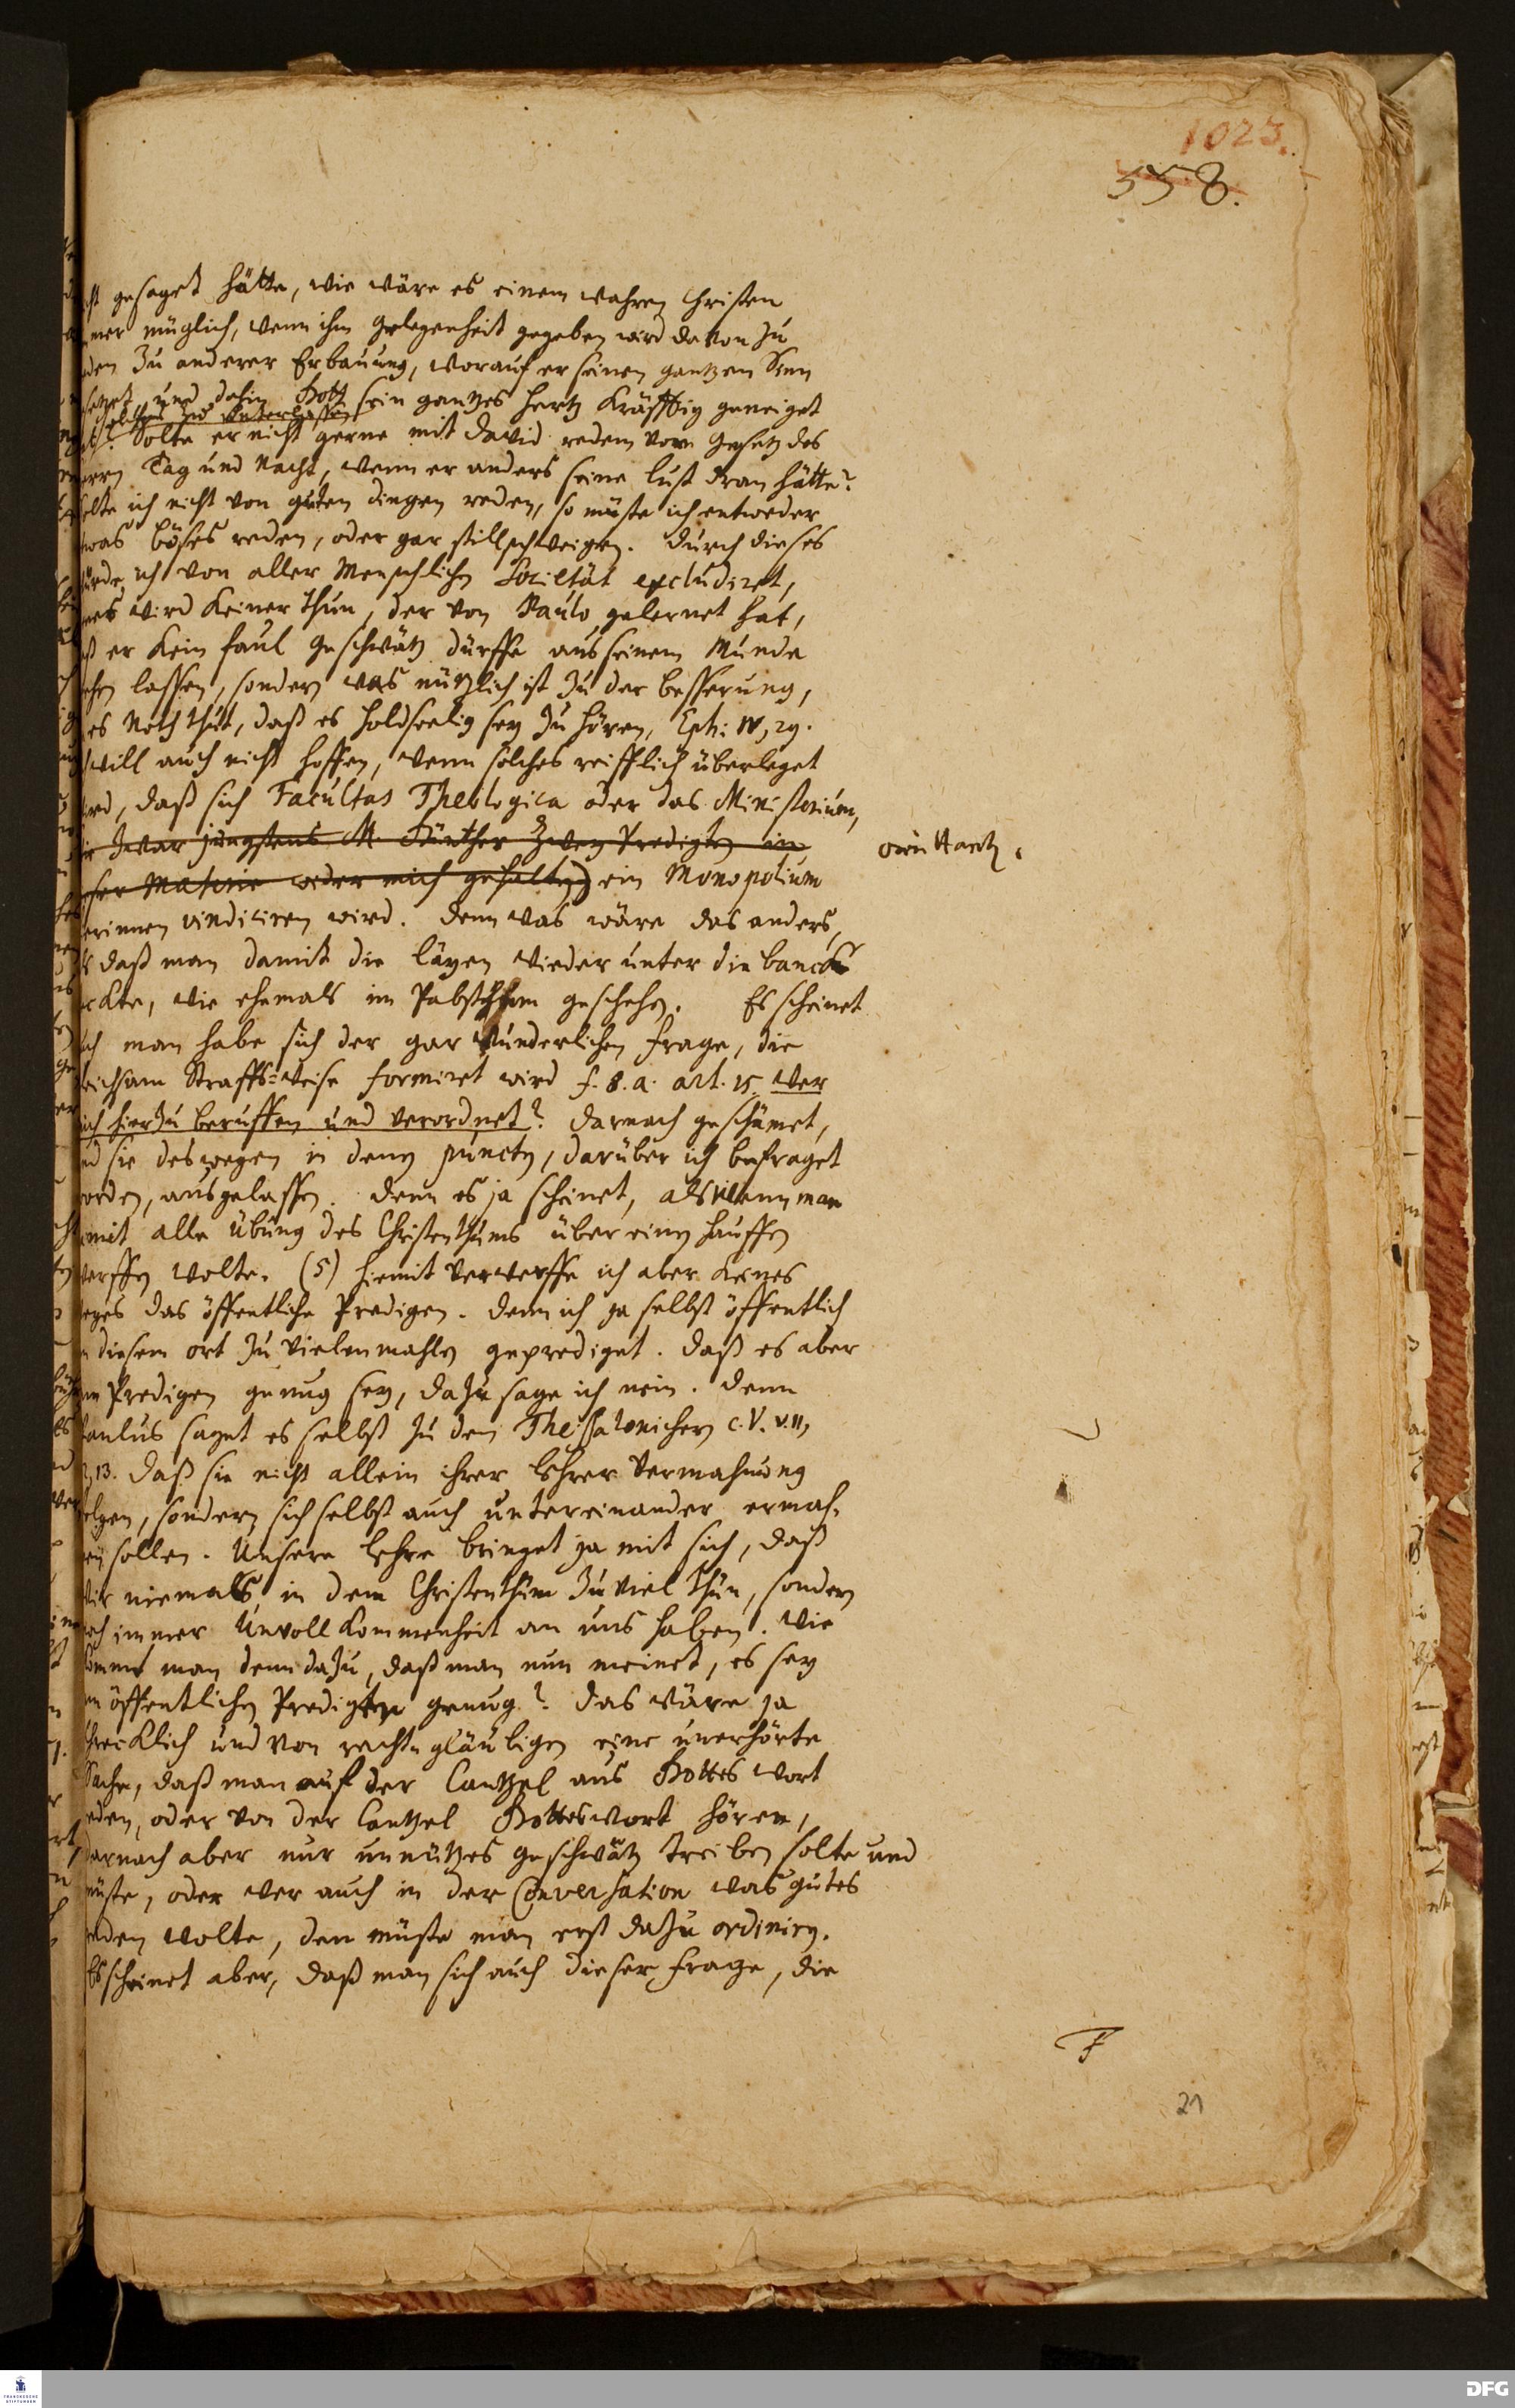 1023.
558.
gesaget hätte, wie wäre es einem wahren Christen
müglich, wenn ihm gelegenheit gegeben wird davon zu
den zu anderer Erbauung, worauf er seinen gantzen Sinn
setzet, und dahin Gott sein gantzes hertz kräfftig geneiget
solches zu unterlassen
Solte er nicht gerne mit David reden vom Gesetz des
errn Tag und Nacht, wenn er anders seine lust dran hätte?
olte ich nicht von guten dingen reden, so müste ich entweder
was böses reden, oder gar stillschweigen. Durch dieses
ürde ich von aller Menschlichen Societät excludiret,
nes wird keiner thun, der von Paulo gelernet hat,
ß er kein faul geschwätz dürffe aus seinem Munde
ehen lassen, sondern was nützlich ist zu der besserung,
es Noth thut, daß es holdseelig sey zu hören, Eph: IV, 29.
will auch nicht hoffen, wenn solches reifflich überleget
ird, daß sich Facultas Theologica oder das Ministerium,
ie zwar jüngstens M. Günther zwey Predigten in
omittantz.
ser Materie wider mich gehalten) ein Monopolium
erinnen vindiciren wird. Denn was wäre das anders,
ls daß man damit die läyen wieder unter die banck
eckte, wie ehemals im Pabstthum geschehen. Es scheinet
uch man habe sich der gar wunderlichen frage, die
leichsam Straffs-weise formiret wird f. 8. a. art. 15. wer
ich hierzu beruffen und verordnet? darnach geschämet,
nd sie deswegen in denen puncten, darüber ich befraget
orden, ausgelassen. Denn es ja scheinet, als wenn man
mit alle übung des Christenthums über einen hauffen
werffen wolte. (5) hiemit verwerffe ich aber keines
weges das öffentliche Predigen. Denn ich ja selbst öffentlich
n diesem ort zu vielen mahlen geprediget. Daß es aber
am Predigen genug sey, dazu sage ich nein. Denn
Paulus saget es selbst zu den Thessalonichern c. V. v. 11,
2, 13. daß sie nicht allein ihrer Lehrer Vermahnung
olgen, sondern sich selbst auch untereinander ermah-
nen sollen. Unsere Lehre bringet ja mit sich, daß
wir niemals in dem Christenthum zu viel thun, sondern
noch immer Unvollkommenheit an uns haben. Wie
kommt man denn dazu, daß man nun meinet, es sey
an öffentlichen Predigten genug? Das wäre ja
schrecklich und von rechtgläubigen eine unerhörte
Sache, daß man auf der Cantzel aus Gottes Wort
reden, oder von der Cantzel Gottes wort hören,
darnach aber nur unnützes geschwätz treiben solte und
müste, oder wer auch in der Conversation was gutes
reden wolte, den müste man erst dazu ordiniren.
Es scheinet aber, daß man sich auch dieser frage, die
F
21
FRANCKESCHE
STIFTUNGEN
DFG